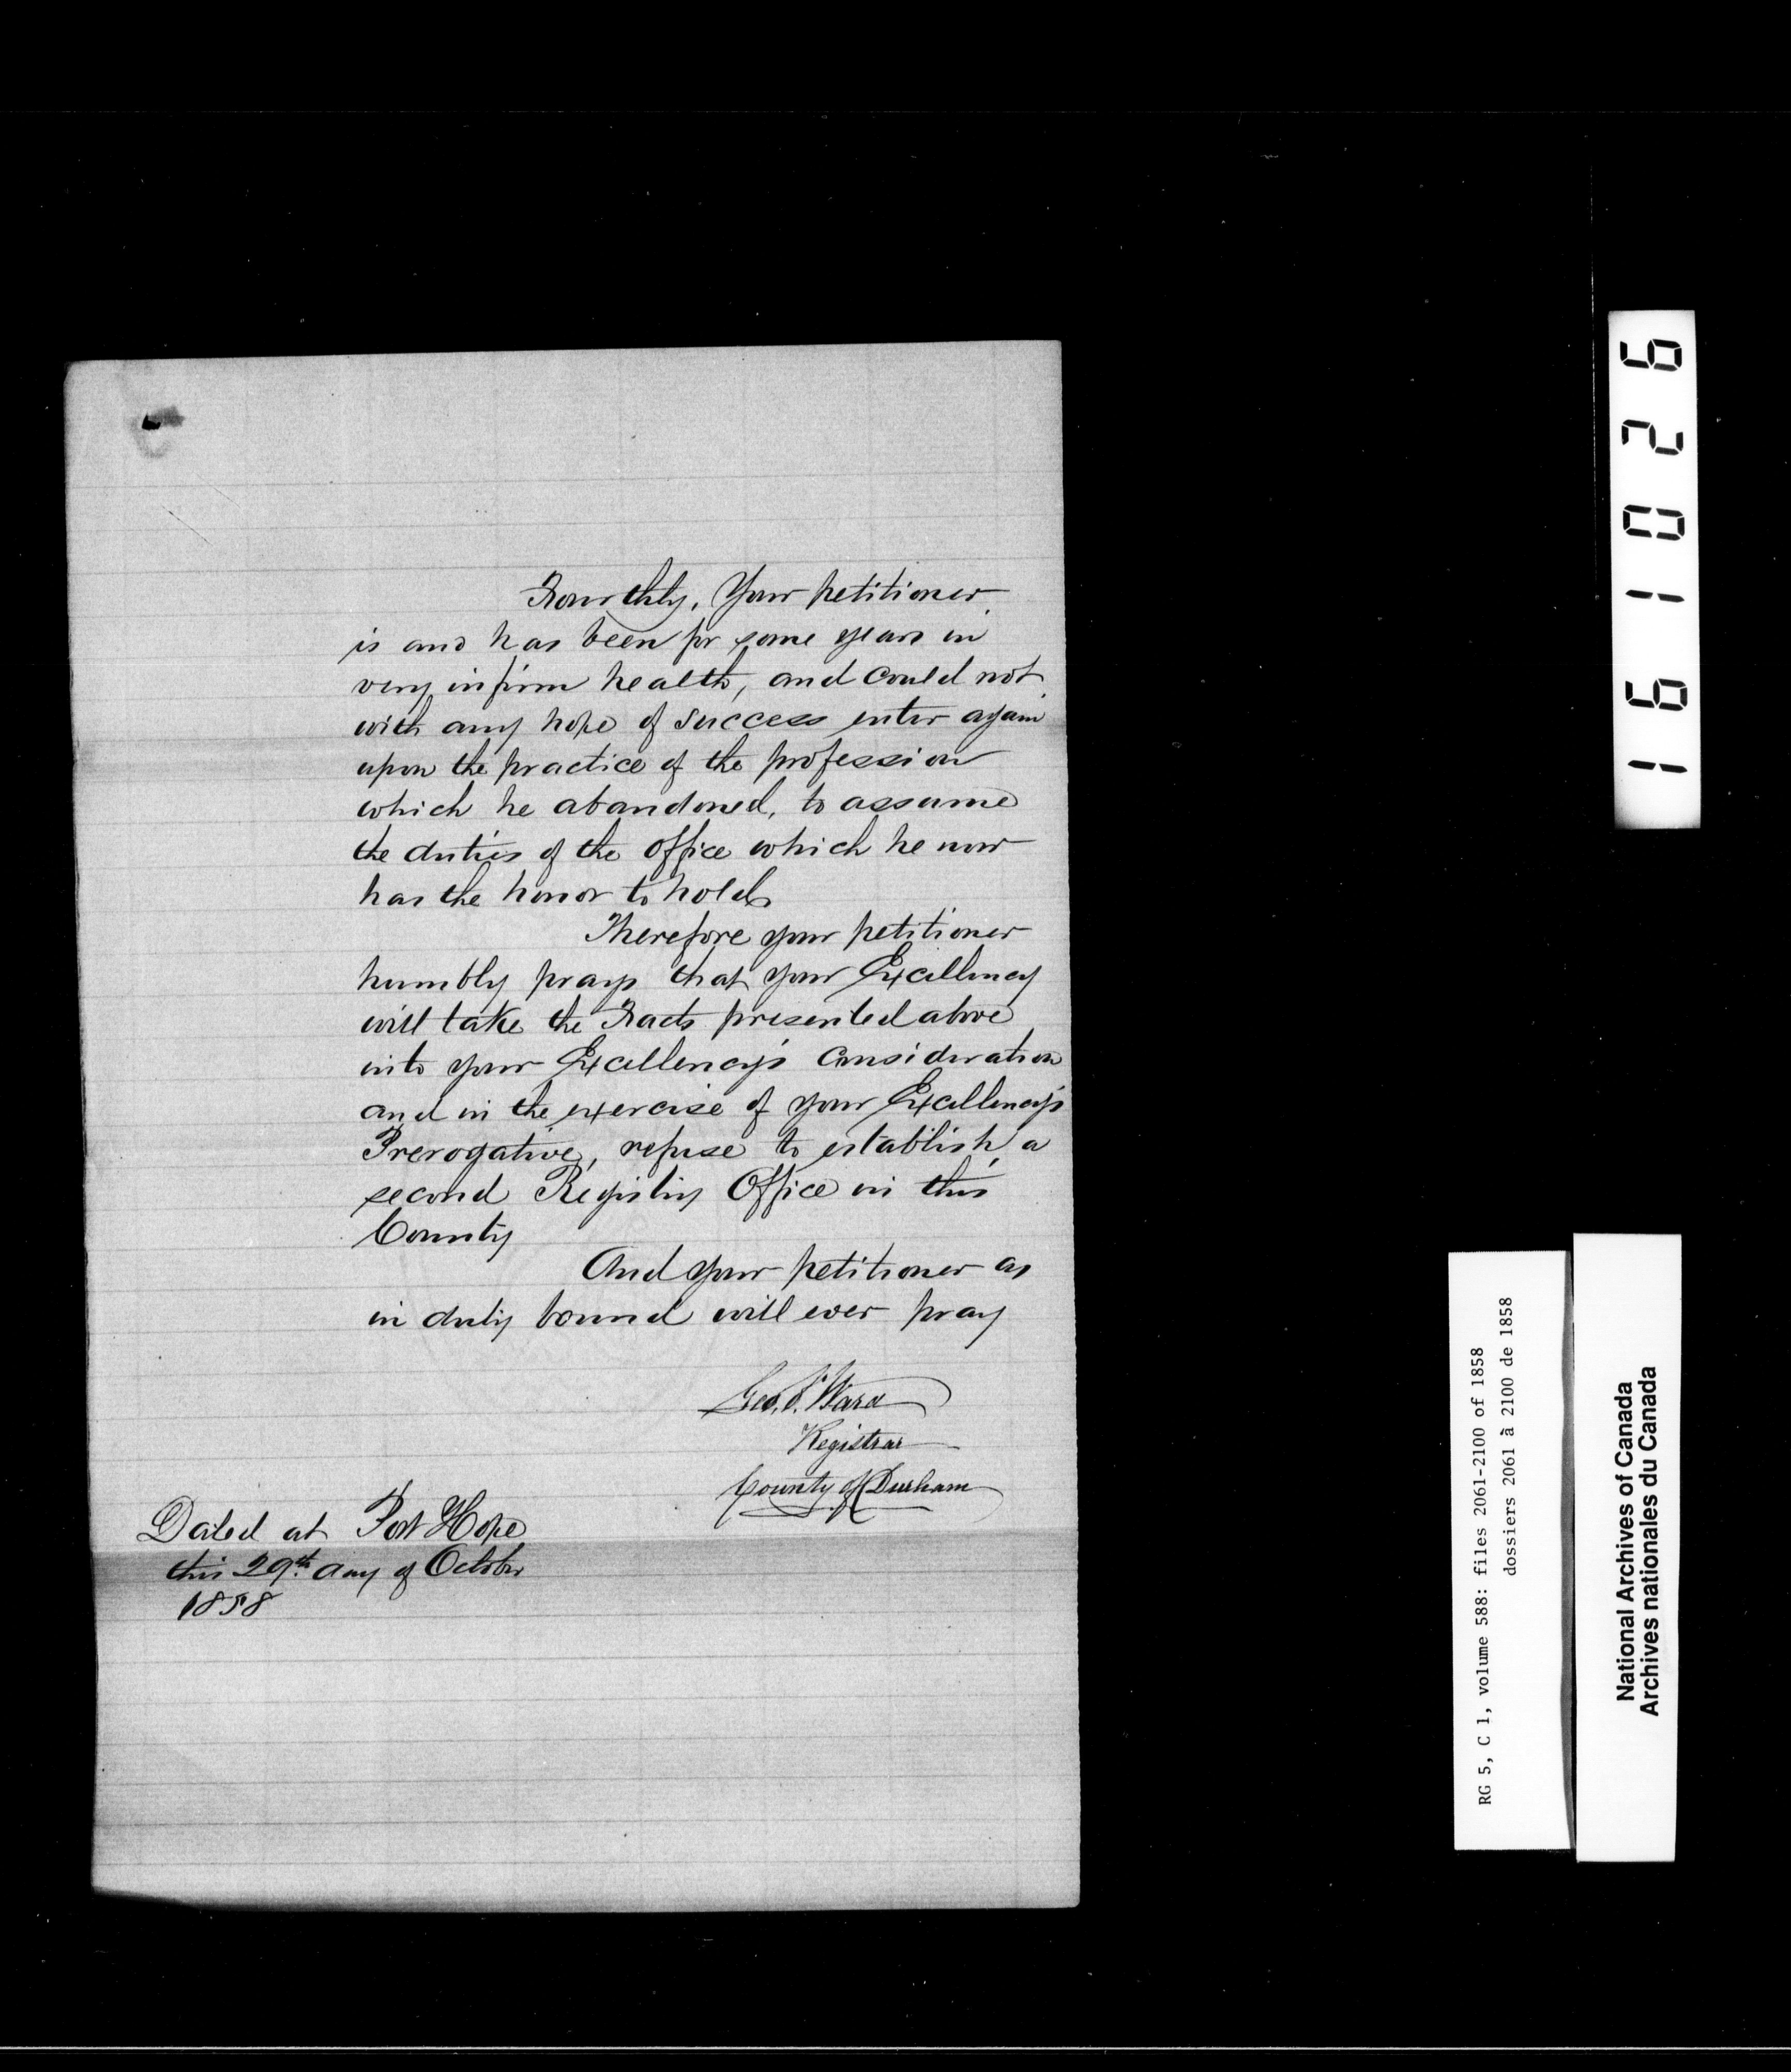 Fourthly, Your petitioner
is and has been for some years in
very infirm health, and could not
with any hope of success enter again
upon the practice of the profession
which he abandoned, to assume
the duties of the office which he now
has the honor to hold
Therefore your petitioner
humbly prays that your Excellency
will take the Facts presented above
into your Excellency's Consideration
and in the exercise of your Excellency's
Prerogative, refuse to establish a
second Registry Office in this
County
And your petitioner as
in duty bound will ever pray
Geo. Ward
Registrar
County of Durham
Dated at Port Hope
this 29th day of October
1858
161026
RG 5, C 1, volume 588: files 2061-2100 of 1858
dossiers 2061 à 2100 de 1858
National Archives of Canada
Archives nationales du Canada